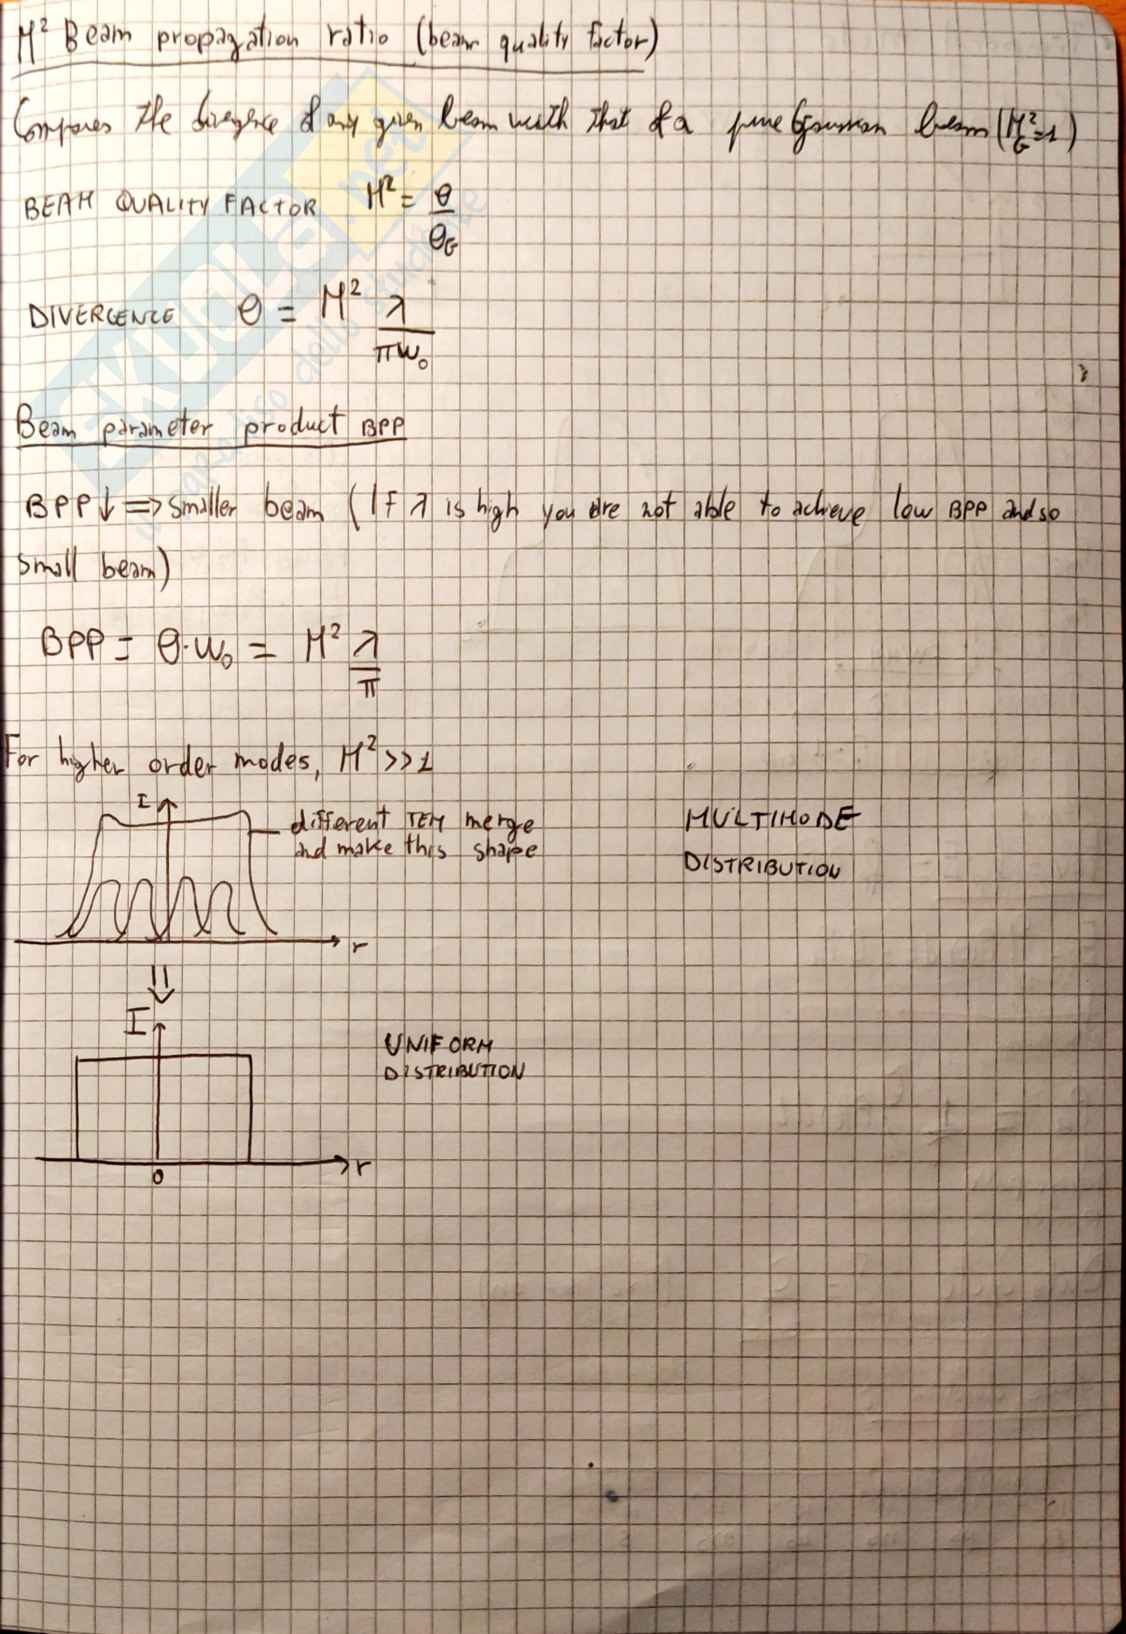 M² Beam propagation ratio (beam quality factor)
Compares the divergence of any given beam with that of a pure Gaussian beam (M²G=1)
BEAM QUALITY FACTOR M² = θ/θG
DIVERGENCE θ = M² λ/πw₀
Beam parameter product BPP
BPP↓ => smaller beam (If λ is high you are not able to achieve low BPP and so
small beam)
BPP = θ·w₀ = M² λ/π
For higher order modes, M²>>1
I
different TEM merge
and make this shape
r
MULTIMODE
DISTRIBUTION
⇓
I
UNIFORM
DISTRIBUTION
r
0
SKUOLA.net
paradiso dello studente